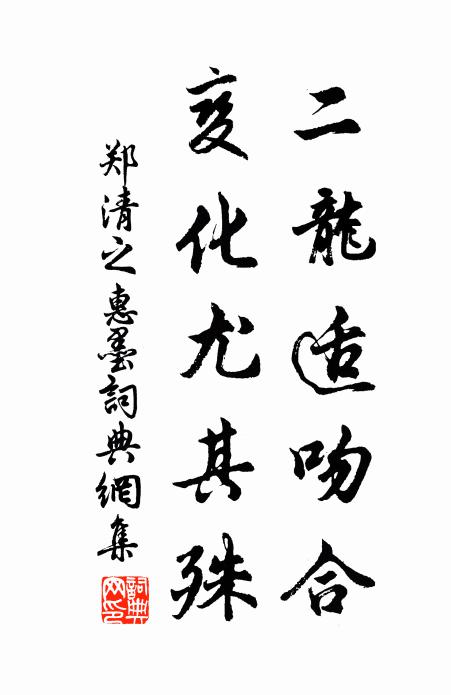 二龍适吻合
变化尤其殊
郑清之惠墨詞典網集
詞典网印